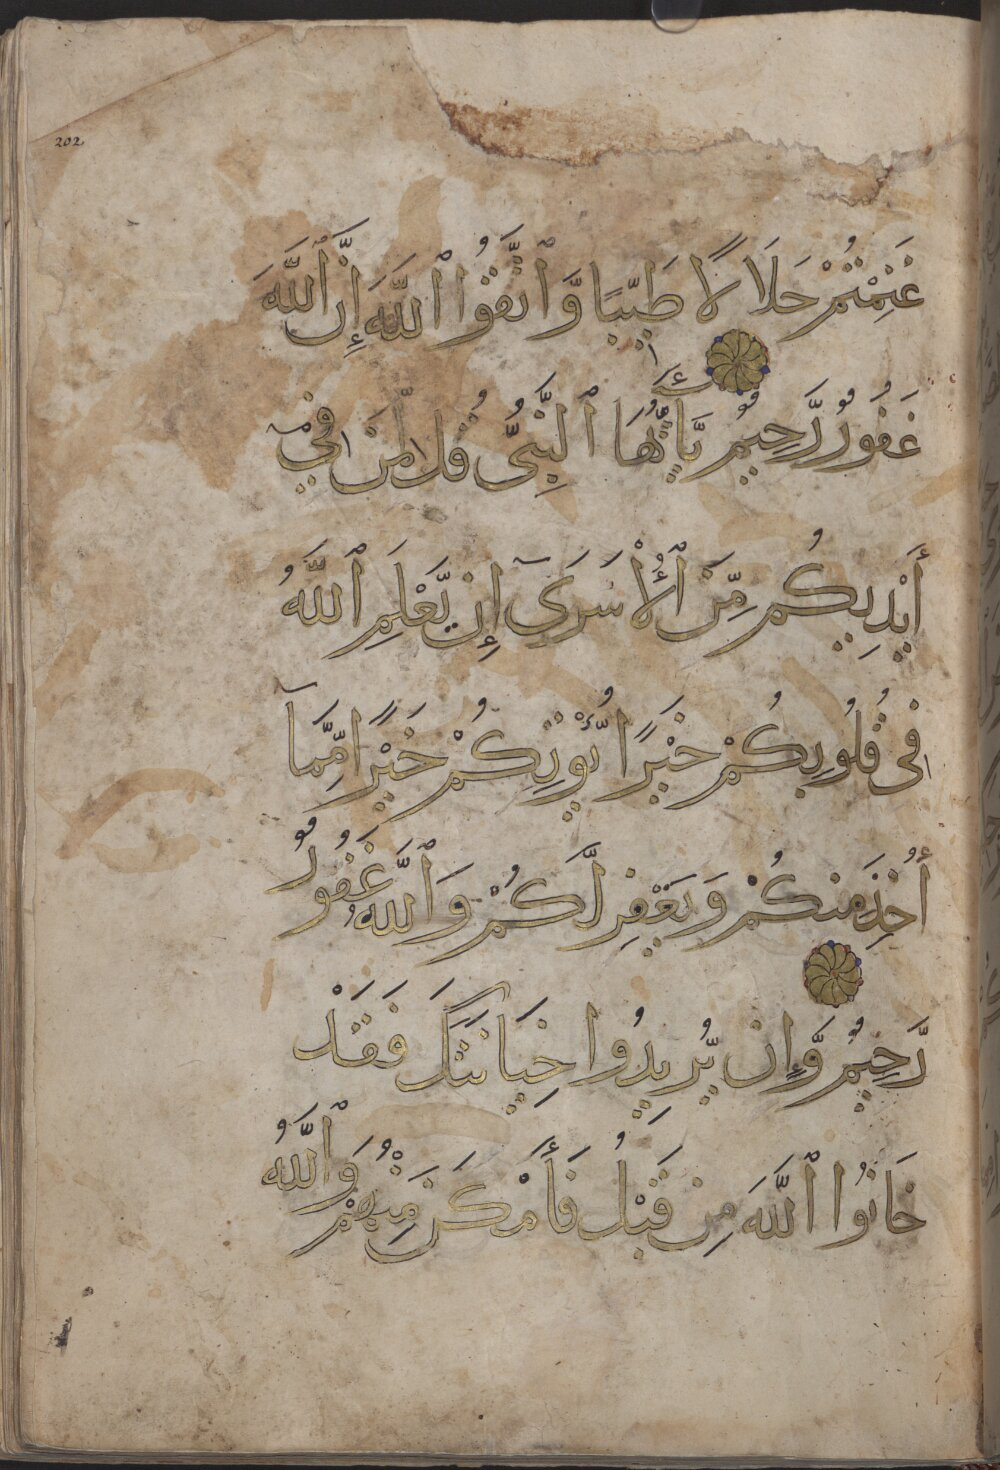 202
غَنِمْتُمْ حَلَالًا طَيِّبًا وَّاتَّقُوا اللَّهَ إِنَّ اللَّهَ
غَفُورٌ رَّحِيمٌ يَآأَيُّهَا النَّبِيُّ قُل لِّمَن فِي
أَيْدِيكُم مِّنَ ٱلْأُسَرَىٰٓ إِن يَّعْلَمِ ٱللَّهُ
فِي قُلُوبِكُمْ خَيْرًا يُّؤْتِكُمْ خَيْرًا مِّمَّآ
أُخِذَ مِنكُمْ وَيَغْفِرْ لَكُمْ وَٱللَّهُ غَفُورٌ
رَّحِيمٌ وَّإِن يُّرِيدُوا خِيَانَتَكَ فَقَدْ
خَانُوا ٱللَّهَ مِن قَبْلُ فَأَمْكَنَ مِنْهُمْ وَٱللَّهُ